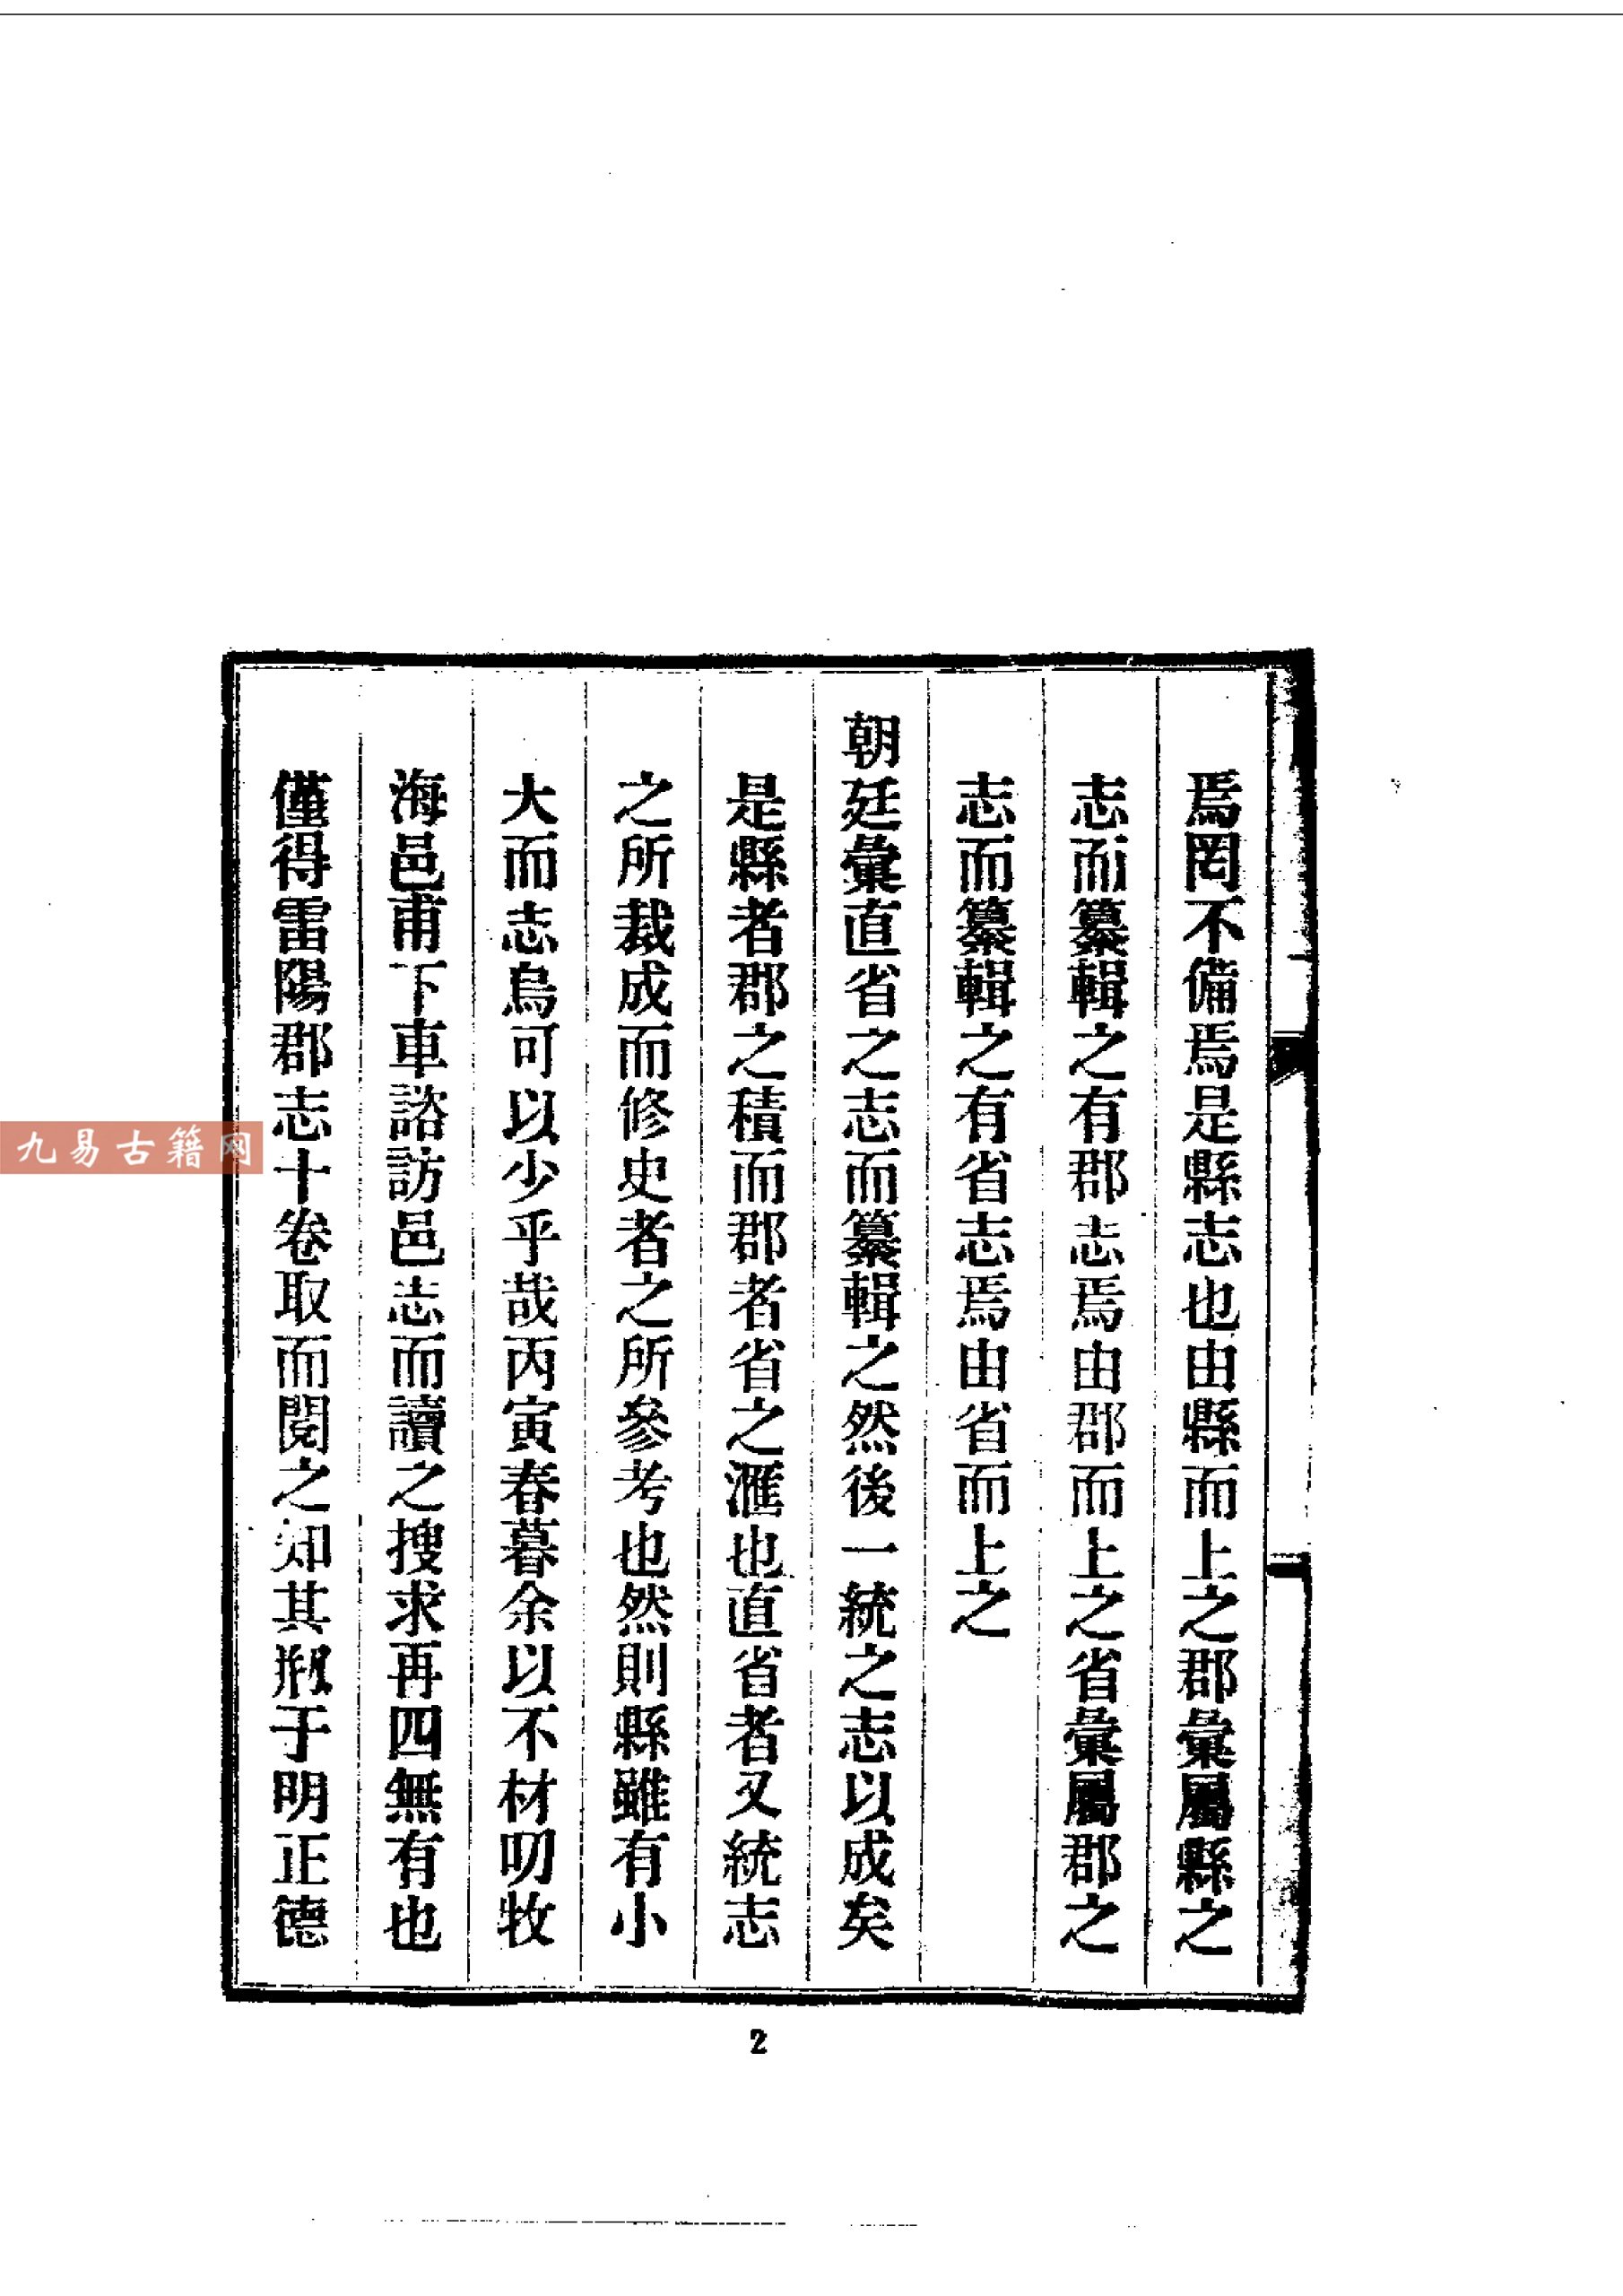 焉罔不備焉是縣志也由縣而上之郡彙屬縣之
志而纂輯之有郡志焉由郡而上之省彙屬郡之
志而纂輯之有省志焉由省而上之
朝廷彙直省之志而纂輯之然後一統之志以成矣
是縣者郡之積而郡者省之滙也直省者又統志
之所裁成而修史者之所參考也然則縣雖有小
大而志烏可以少乎哉丙寅春暮余以不材叨牧
海邑甫下車諮訪邑志而讀之搜求再四無有也
僅得雷陽郡志十卷取而閱之知其剏于明正德
2
九易古籍网